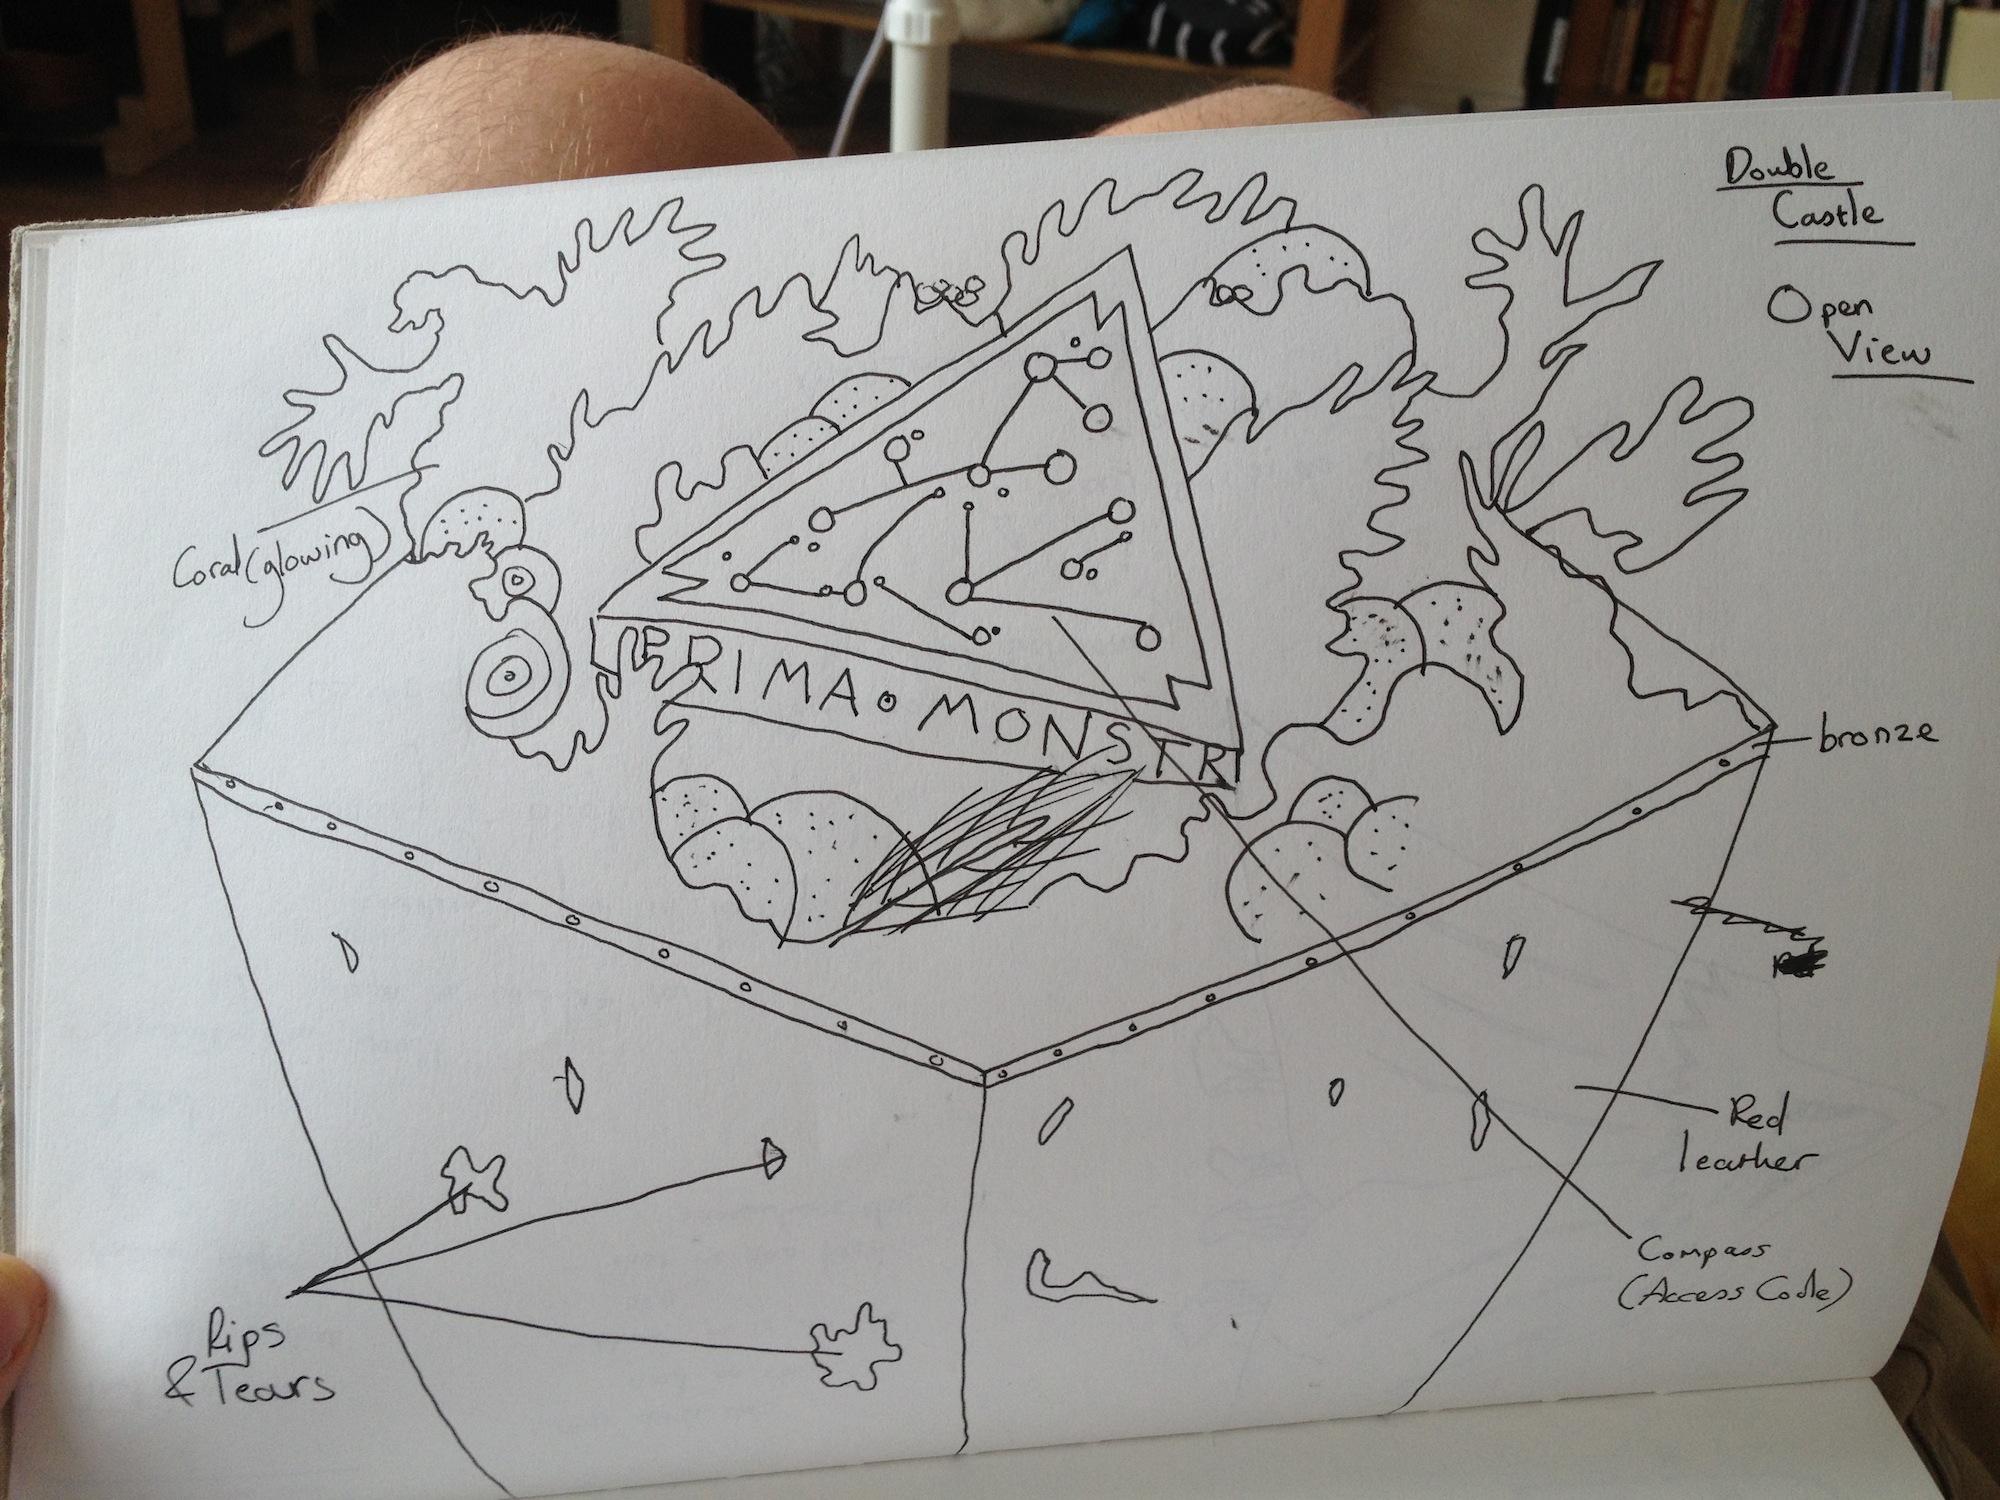 Double
Castle
Open
View
Coral (glowing)
PRIMA • MONSTRI
bronze
Red
leather
Compass
(Access Code)
Rips
& Tears